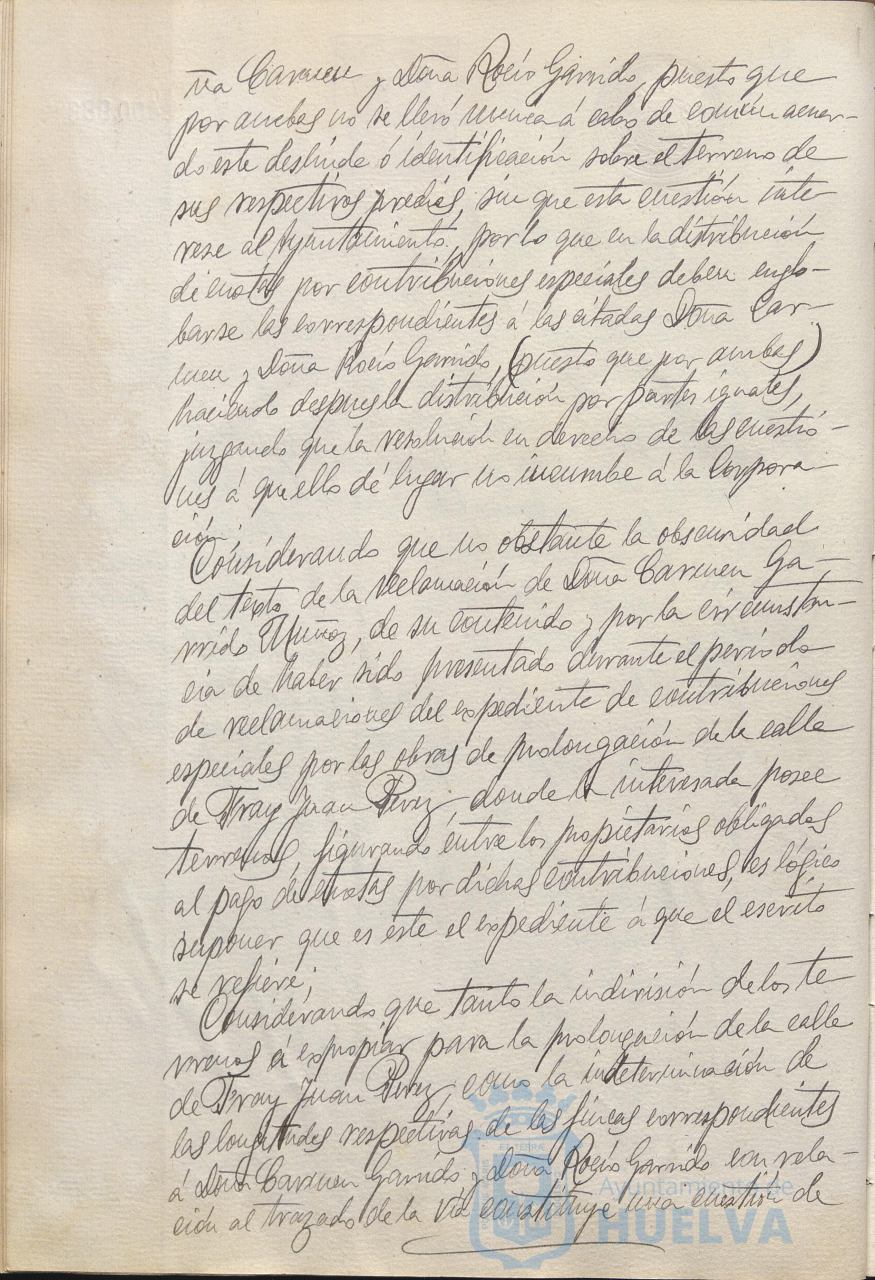 ña Carmen y Doña Rocío Garrido, puesto que
por ambas no se llevó nunca á cabo de común acuer-
do este deslinde ó identificación sobre el terreno de
sus respectivos predios, sin que esta cuestión inte-
rese al Ayuntamiento, por lo que en la distribución
de cuotas por contribuciones especiales deben englo-
barse las correspondientes á las citadas Doña Car-
men y Doña Rocío Garrido, (puesto que por ambas)
haciendo después la distribución por partes iguales,
juzgando que la resolución en derecho de las cuestio-
nes á que ello dé lugar no incumbe á la Corpora-
ción;
Considerando que no obstante la obscuridad
del texto de la reclamación de Doña Carmen Ga-
rrido Muñoz, de su contenido y por la circunstan-
cia de haber sido presentado durante el periodo
de reclamaciones del expediente de contribuciones
especiales por las obras de prolongación de la calle
de Fray Juan Pérez, donde la interesada posee
terrenos, figurando entre los propietarios obligados
al pago de cuotas por dichas contribuciones, es lógico
suponer que es este el expediente á que el escrito
se refiere;
Considerando que tanto la indivisión de los te
rrenos á expropiar para la prolongación de la calle
de Fray Juan Pérez, como la indeterminación de
las longitudes respectivas de las fincas correspondientes
á Doña Carmen Garrido y Doña Rocío Garrido con rela-
ción al trazado de la vía constituye una cuestión de
Ayuntamiento de
HUELVA